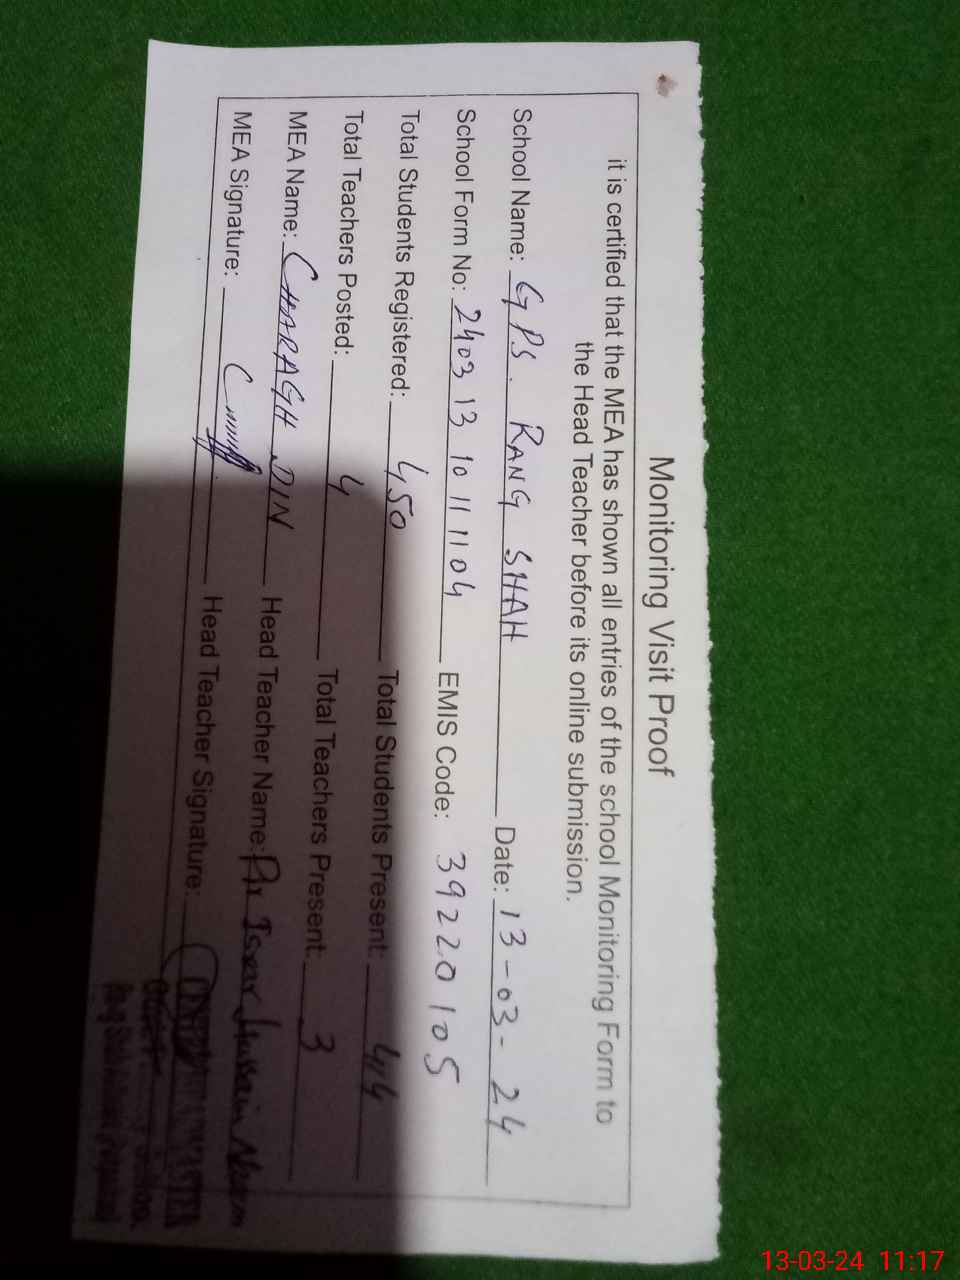 Monitoring Visit Proof
it is certified that the MEA has shown all entries of the school Monitoring Form to
the Head Teacher before its online submission.
School Name: GPS. RANG SHAH Date: 13-03-24
School Form No: 2403 13 10 11 1104 EMIS Code: 39220105
Total Students Registered: 450 Total Students Present: 414
Total Teachers Posted: 4 Total Teachers Present: 3
MEA Name: CHARAGH DIN Head Teacher Name: Hussain
MEA Signature: Head Teacher Signature:
MASTER
13-03-24 11:17